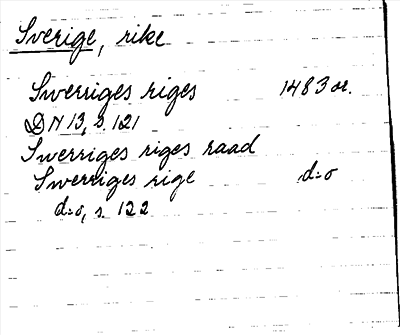 Sverige, rike
Swerriges riges 1483 or.
DN 13, s. 121
Swerriges riges raad
Swerriges rige d:o
d:o, s. 122